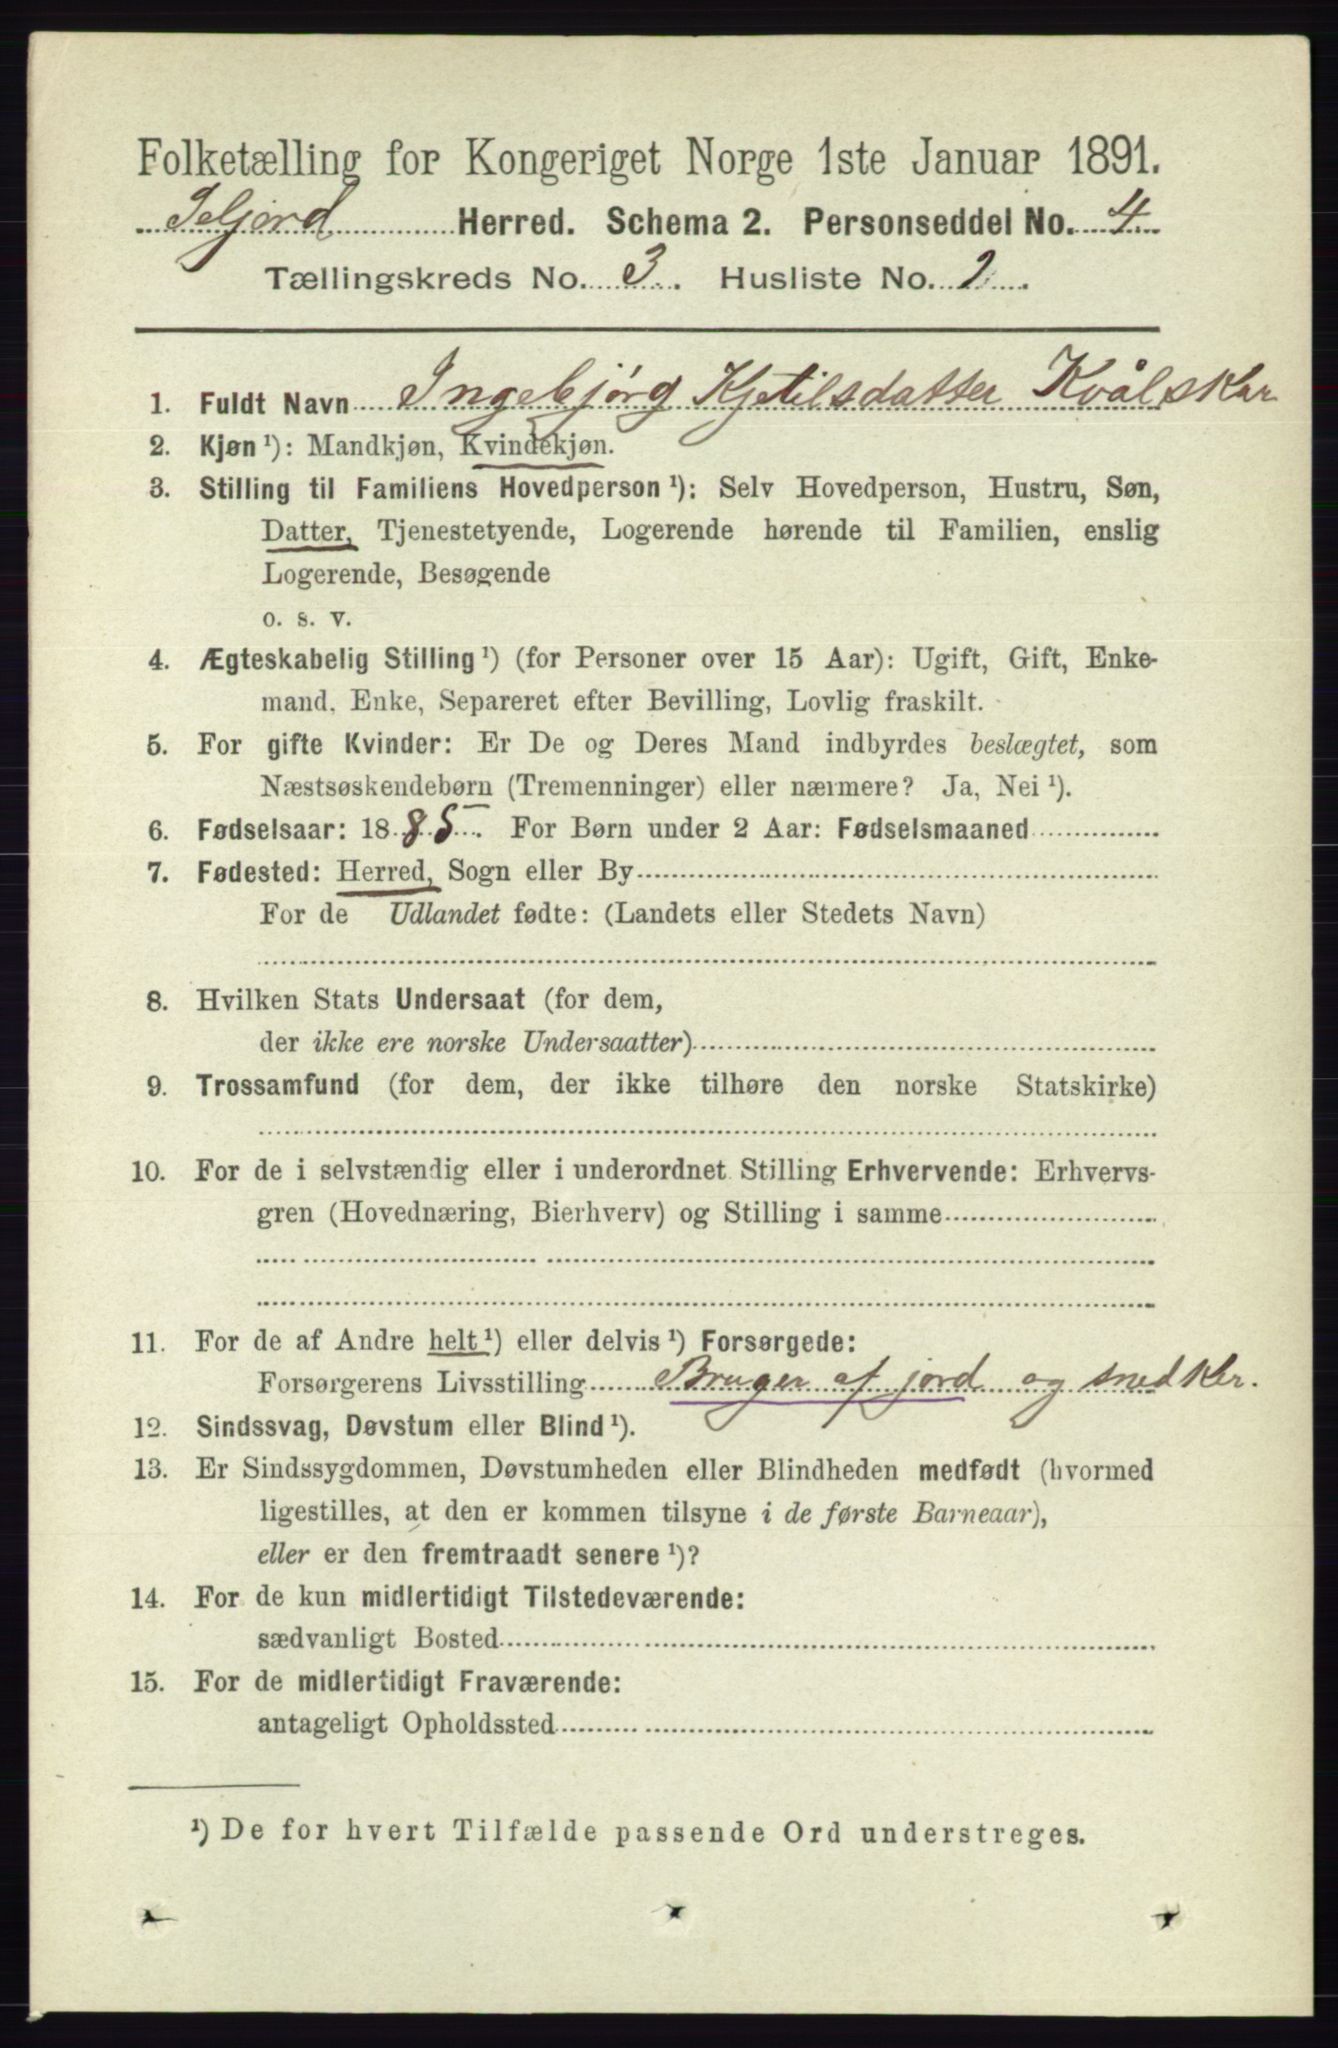 Folketælling for Kongeriget Norge 1ste Januar 1891.
Seljord Herred. Schema 2. Personseddel No. 4
Tællingskreds No. 3. Husliste No. 2.
1. Fuldt Navn Ingebjørg Kjetilsdatter Kvålskar
2. Kjøn ¹): Mandkjøn, Kvindekjøn.
3. Stilling til Familiens Hovedperson ¹): Selv Hovedperson, Hustru, Søn,
Datter, Tjenestetyende, Logerende hørende til Familien, enslig
Logerende, Besøgende
o. s. v.
4. Ægteskabelig Stilling ¹) (for Personer over 15 Aar): Ugift, Gift, Enke-
mand, Enke, Separeret efter Bevilling, Lovlig fraskilt.
5. For gifte Kvinder: Er De og Deres Mand indbyrdes beslægtet, som
Næstsøskendebørn (Tremenninger) eller nærmere? Ja, Nei ¹).
6. Fødselsaar: 1885. For Børn under 2 Aar: Fødselsmaaned
7. Fødested: Herred, Sogn eller By
For de Udlandet fødte: (Landets eller Stedets Navn)
8. Hvilken Stats Undersaat (for dem,
der ikke ere norske Undersaatter)
9. Trossamfund (for dem, der ikke tilhøre den norske Statskirke)
10. For de i selvstændig eller i underordnet Stilling Erhvervende: Erhvervs-
gren (Hovednæring, Bierhverv) og Stilling i samme
11. For de af Andre helt ¹) eller delvis ¹) Forsørgede:
Forsørgerens Livsstilling Bruger af jord og snedker.
12. Sindssvag, Døvstum eller Blind ¹).
13. Er Sindssygdommen, Døvstumheden eller Blindheden medfødt (hvormed
ligestilles, at den er kommen tilsyne i de første Barneaar),
eller er den fremtraadt senere ¹)?
14. For de kun midlertidigt Tilstedeværende:
sædvanligt Bosted
15. For de midlertidigt Fraværende:
antageligt Opholdssted
¹) De for hvert Tilfælde passende Ord understreges.